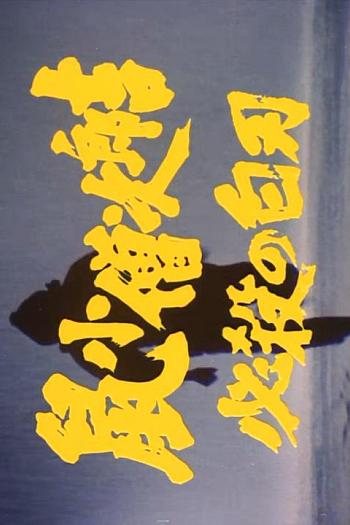 鼠小僧次郎吉
必殺の白刃